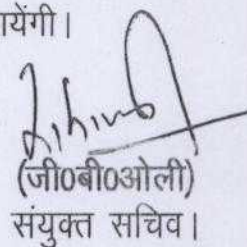 येंगी।
(जी0बी0ओली)
संयुक्त सचिव।